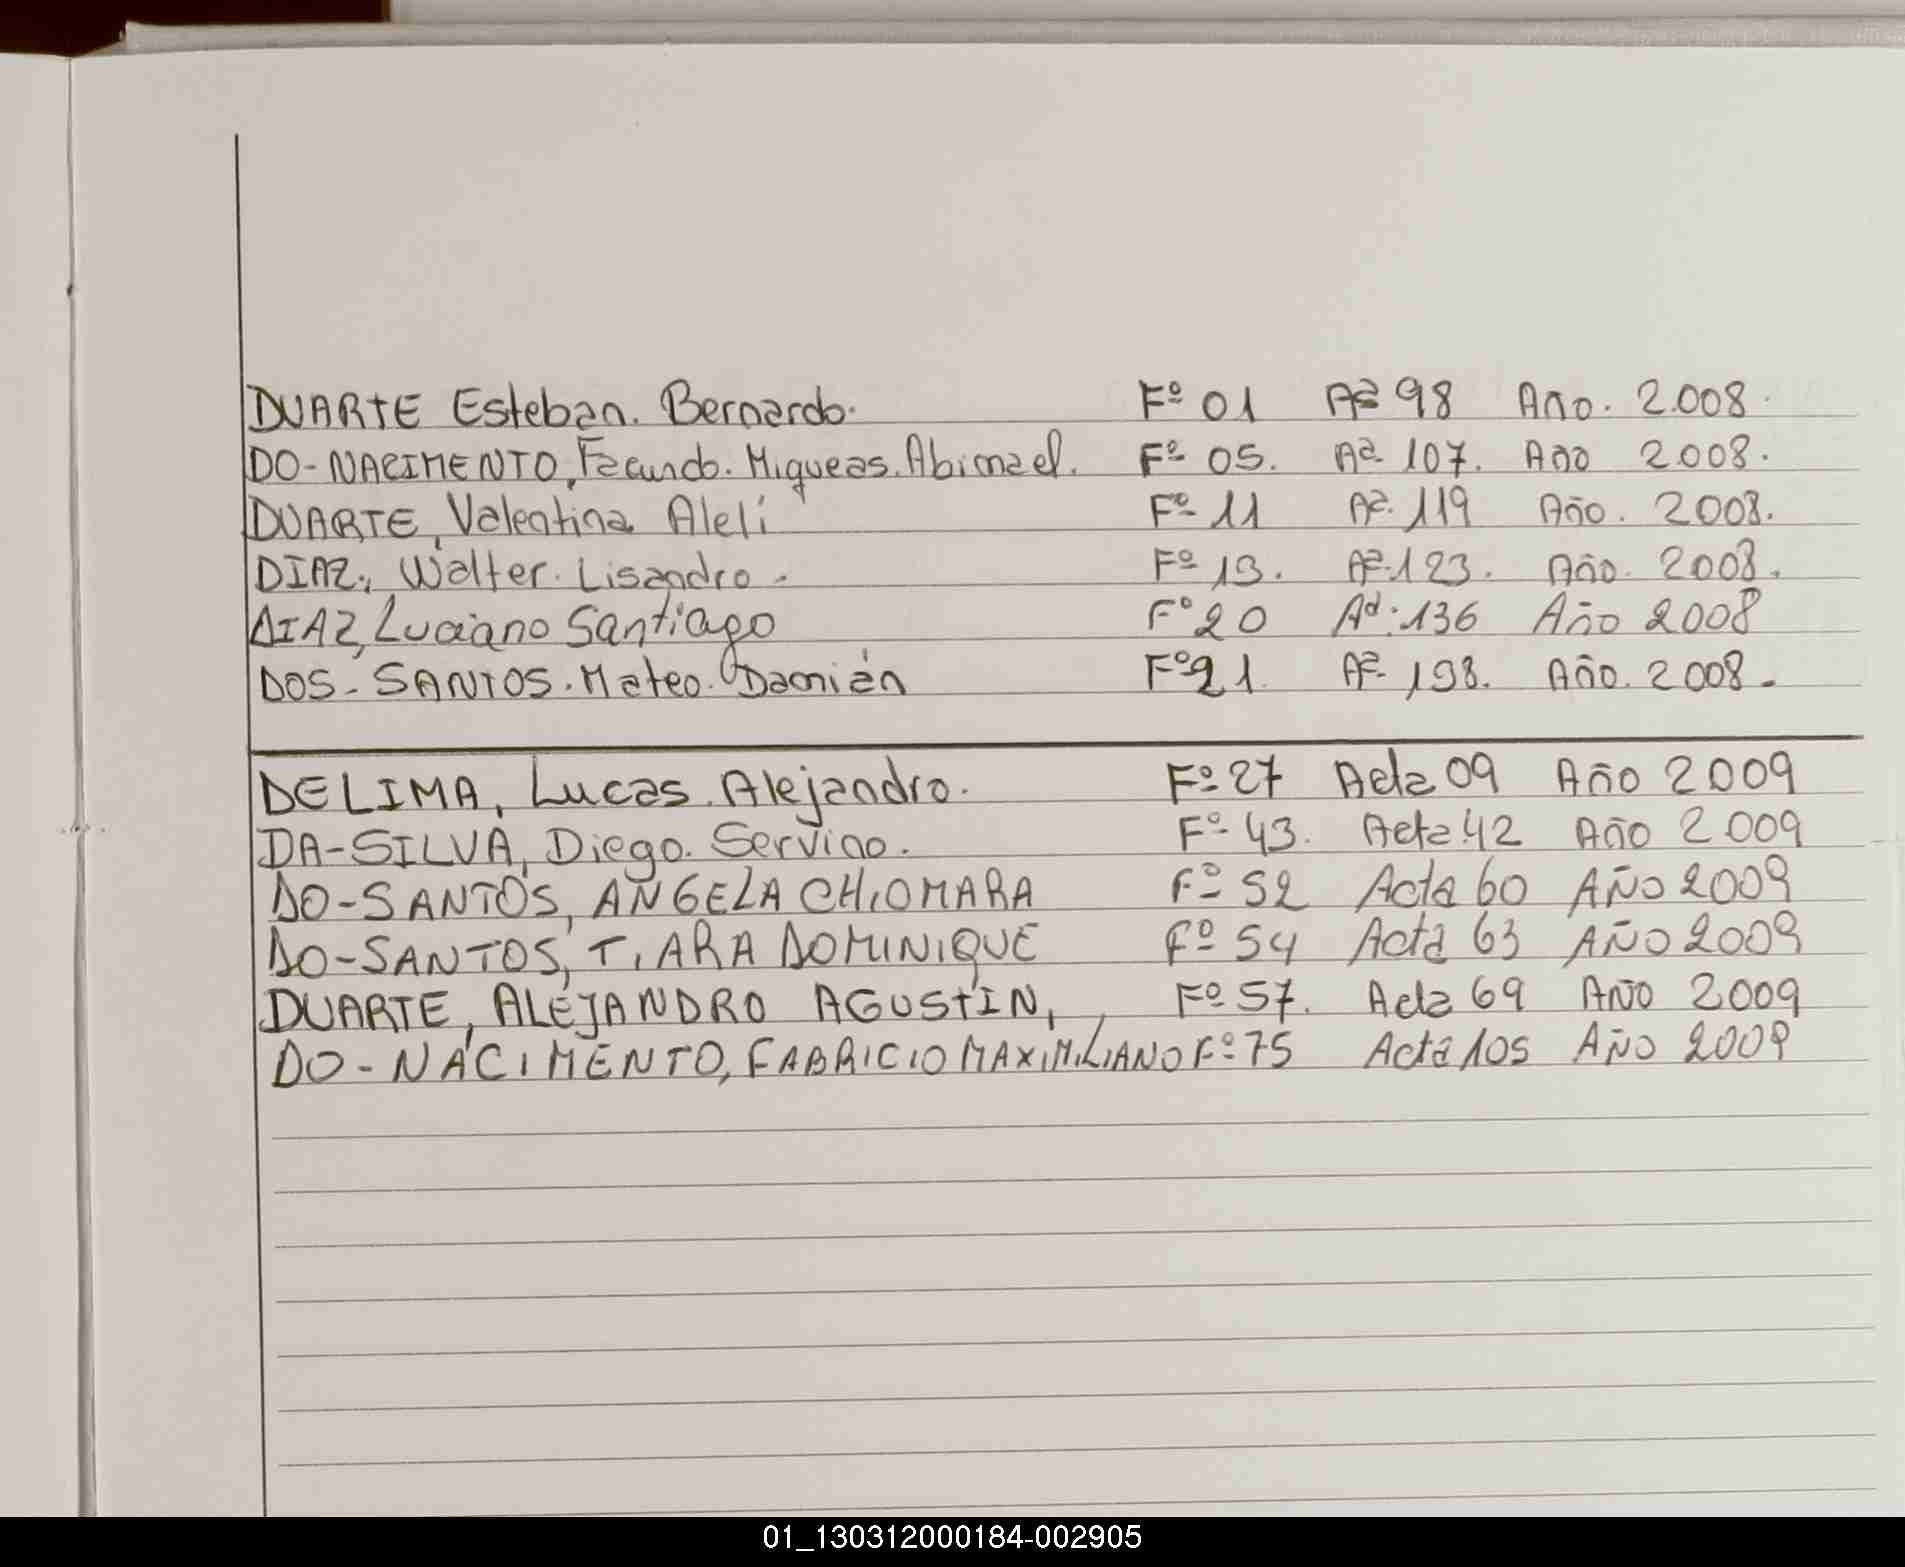 DUARTE Esteban. Bernardo. Fº 01 Aª 98 Año. 2.008.
DO-NACIMENTO, Facundo. Miqueas. Abimael. Fº 05. Aª 107. Año 2008.
DUARTE, Valentina Alelí Fº 11 Aª. 119 Año. 2008.
DIAZ., Walter. Lisandro. Fº 13. Aª. 123. Año. 2008.
DIAZ, Luciano Santiago Fº 20 Aª. 136 Año 2008
DOS-SANTOS. Mateo. Damián Fº 21. Aª 198. Año. 2008.
DELIMA, Lucas. Alejandro. Fº 27 Acta 09 Año 2009
DA-SILVA, Diego. Servino. Fº 43. Acta 42 Año 2009
DO-SANTOS, ANGELA CHIOMARA Fº 52 Acta 60 AÑO 2009
DO-SANTOS, TIARA DOMINIQUE Fº 54 Acta 63 AÑO 2009
DUARTE, ALEJANDRO AGUSTIN, Fº 57. Acta 69 AÑO 2009
DO-NACIMENTO, FABRICIO MAXIMILIANO Fº 75 Acta 105 AÑO 2009
01_130312000184-002905